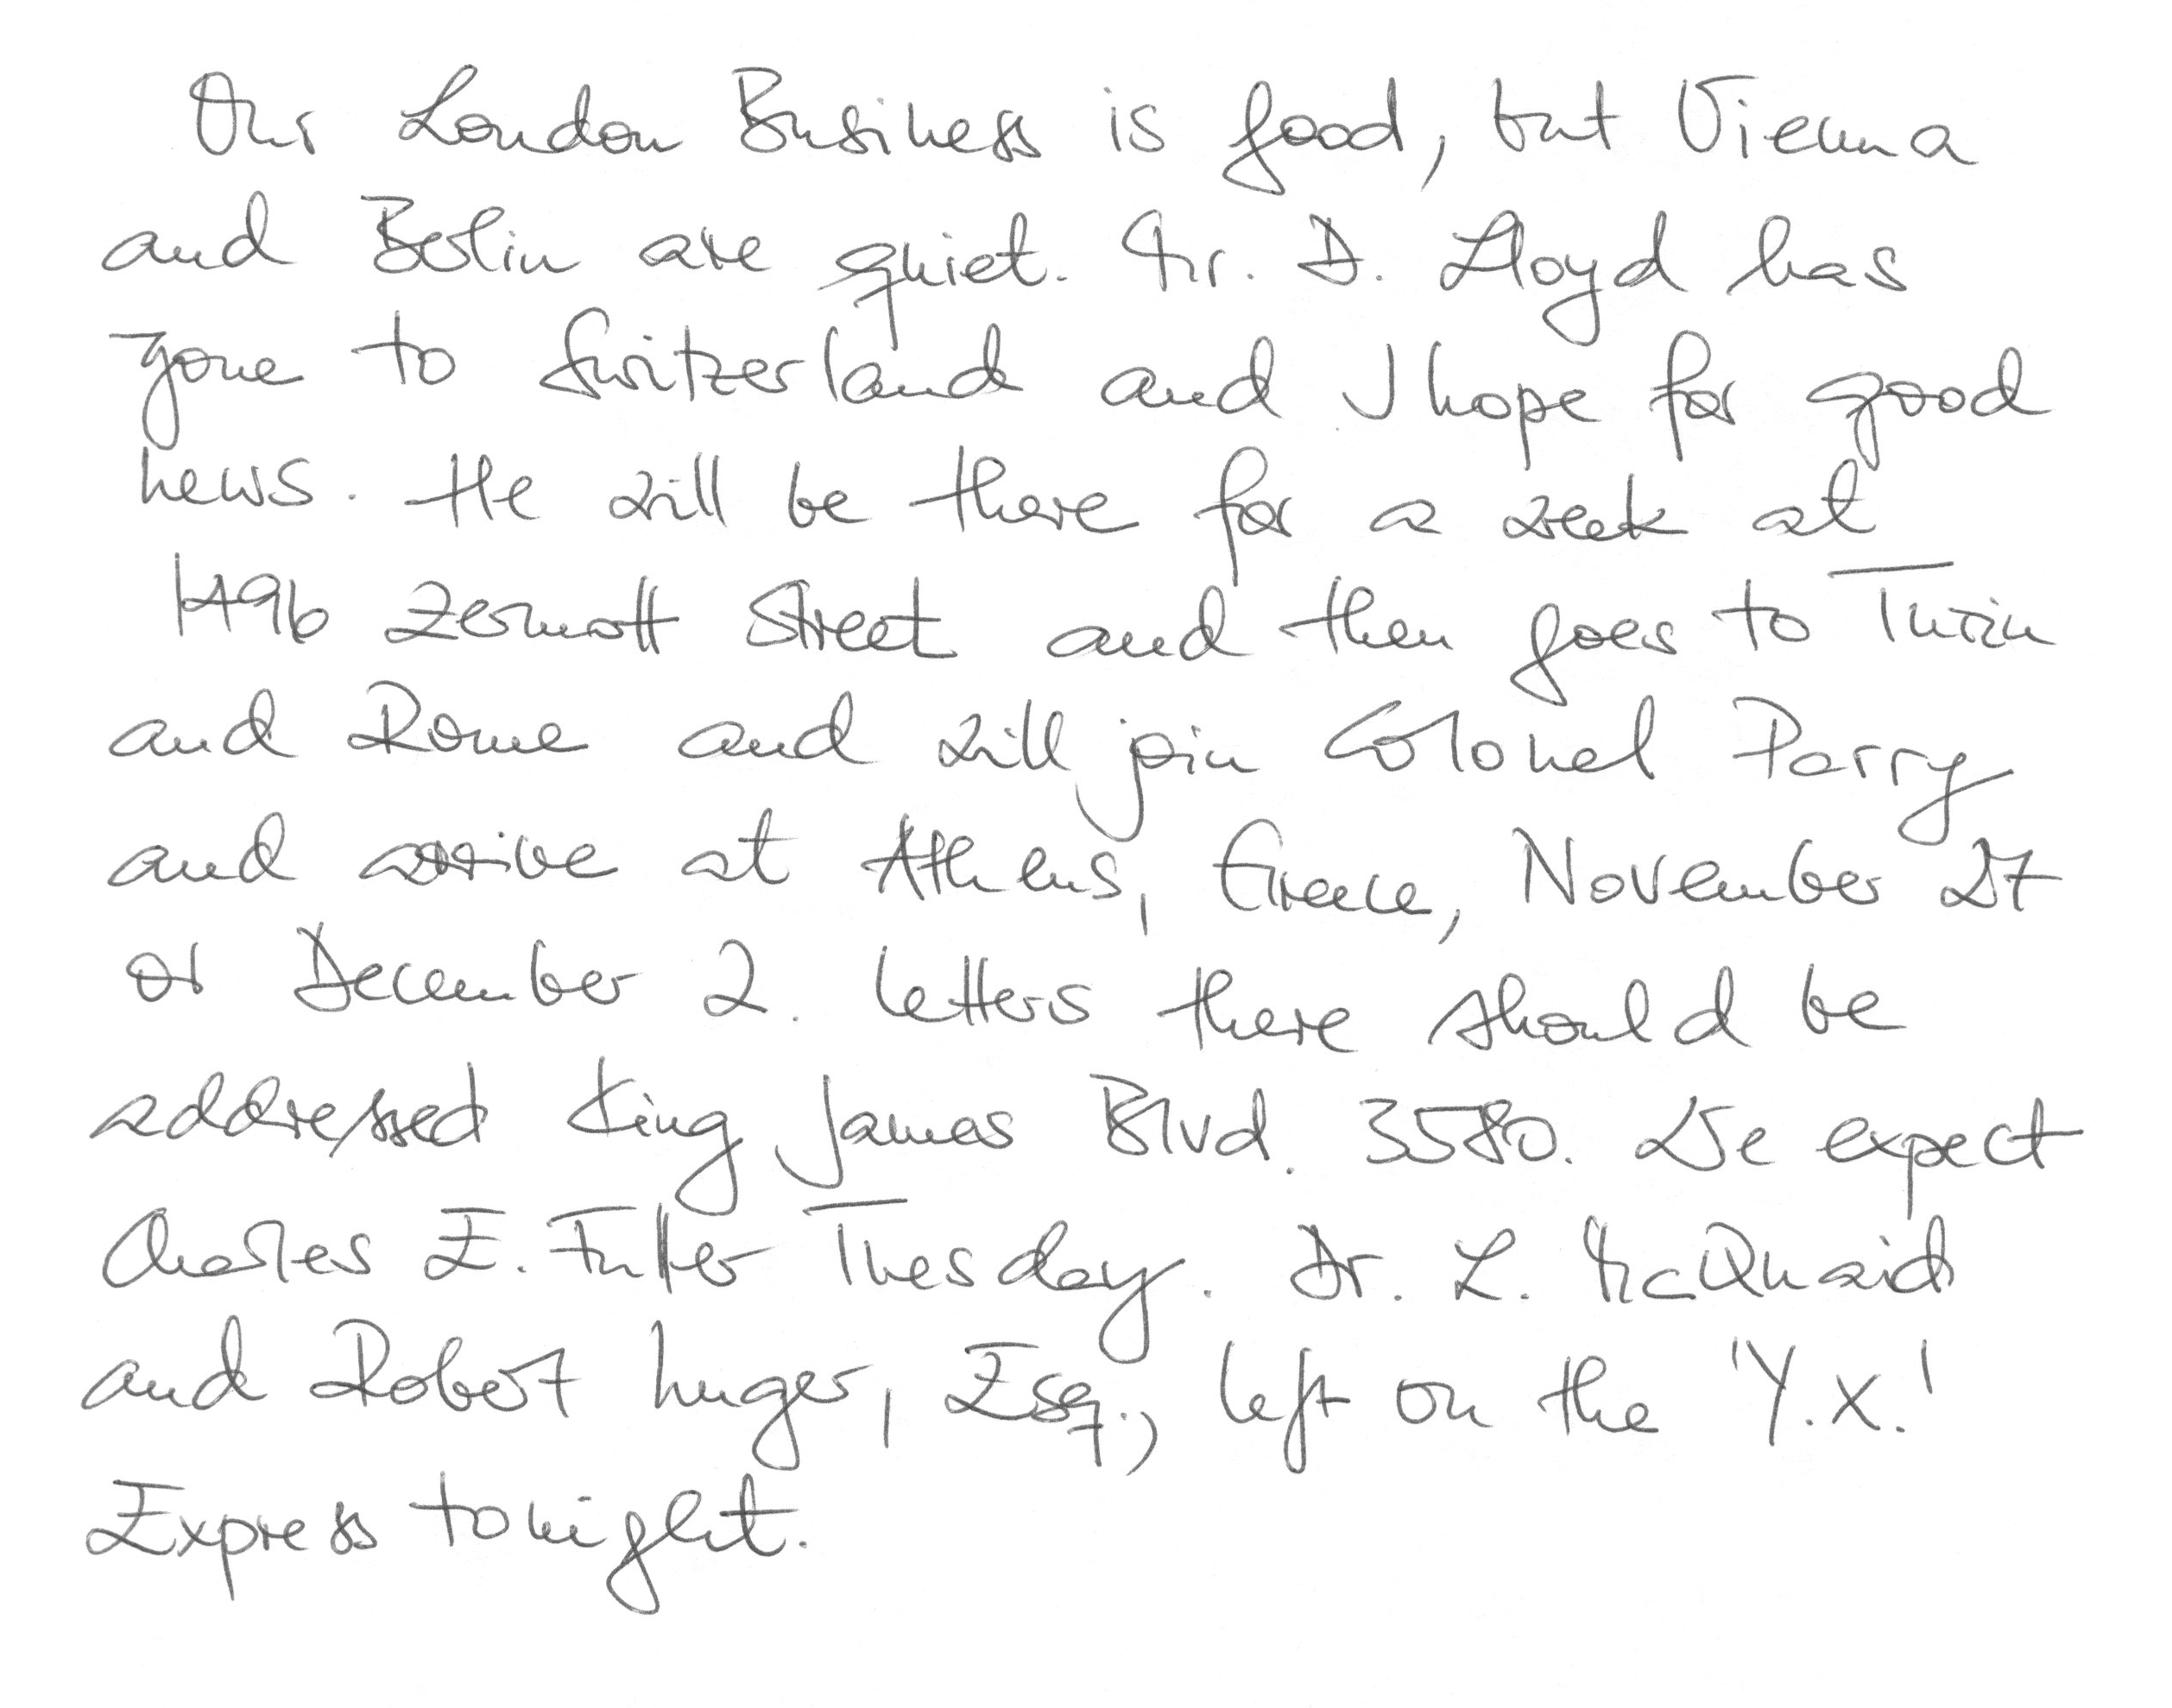 Our London Business is good, but Vienna
and Berlin are quiet. Mr. D. Lloyd has
gone to Switzerland and I hope for good
news. He will be there for a week at
1496 Zermott Street and then goes to Turin
and Rome and will join Colonel Parry
and arrive at Athens, Greece, November 27
or December 2. Letters there should be
addressed King James Blvd. 3580. We expect
Charles E. Fuller Tuesday. Dr. L. McQuaid
and Robert Unger, Esq., left on the 'Y.X.'
Express tonight.